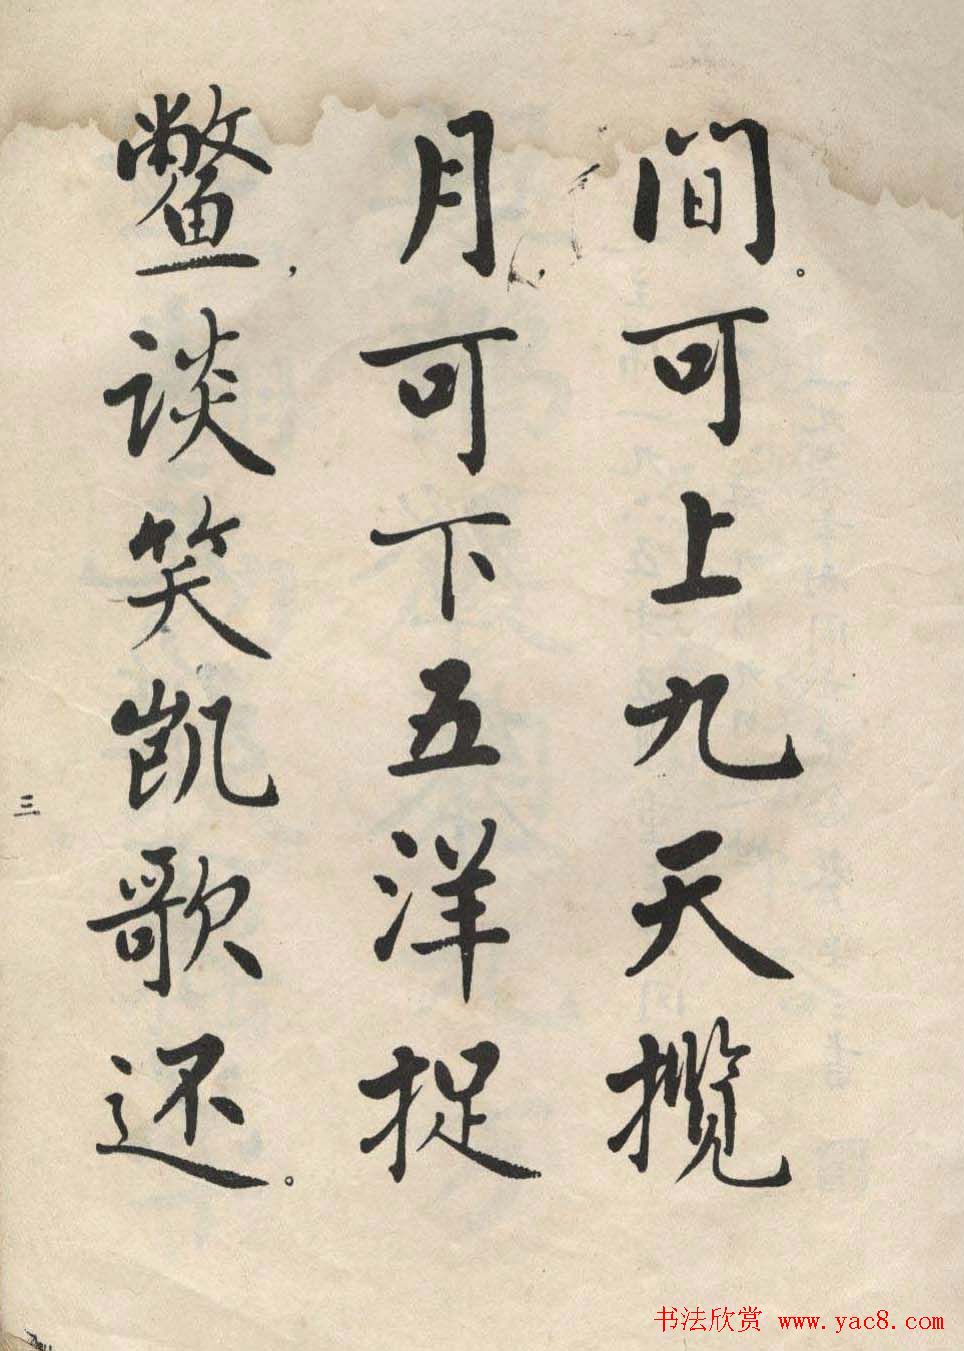 间。可上九天揽
月，可下五洋捉
鳖，谈笑凯歌还。
三
书法欣赏 www.yac8.com